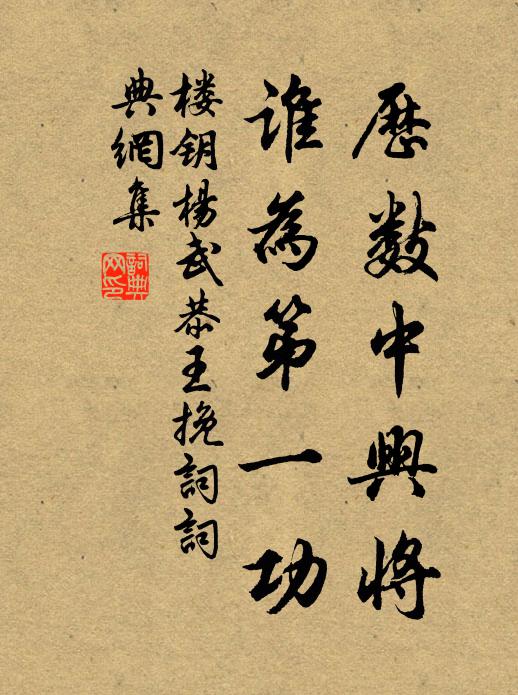 歷數中興將
誰為第一功
楼鑰楊武恭王挽詞詞
典網集
詞典
网印